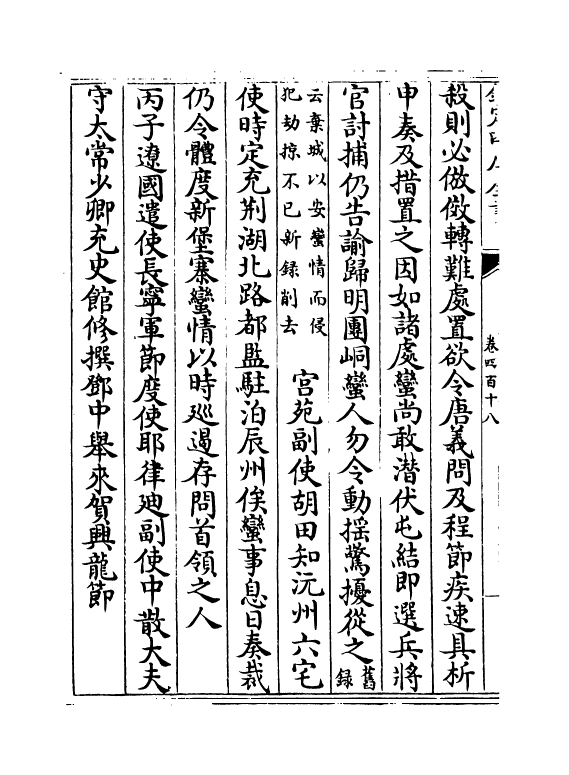 卷四百十八
殺則必倣傚轉難處置欲令唐義問及程節疾速具析
申奏及措置之因如諸處蠻尚敢潛伏屯結即選兵將
官討捕仍告諭歸明團峒蠻人勿令動揺驚擾從之舊録
云棄城以安蠻情而侵犯劫掠不已新録削去
宫苑副使胡田知沅州六宅
使時定充荆湖北路都監駐泊辰州俟蠻事息日奏裁
仍令體度新堡寨蠻情以時廵遏存問首領之人
丙子遼國遣使長寧軍節度使耶律廸副使中散大夫
守太常少卿充史館修撰鄧中舉來賀興龍節